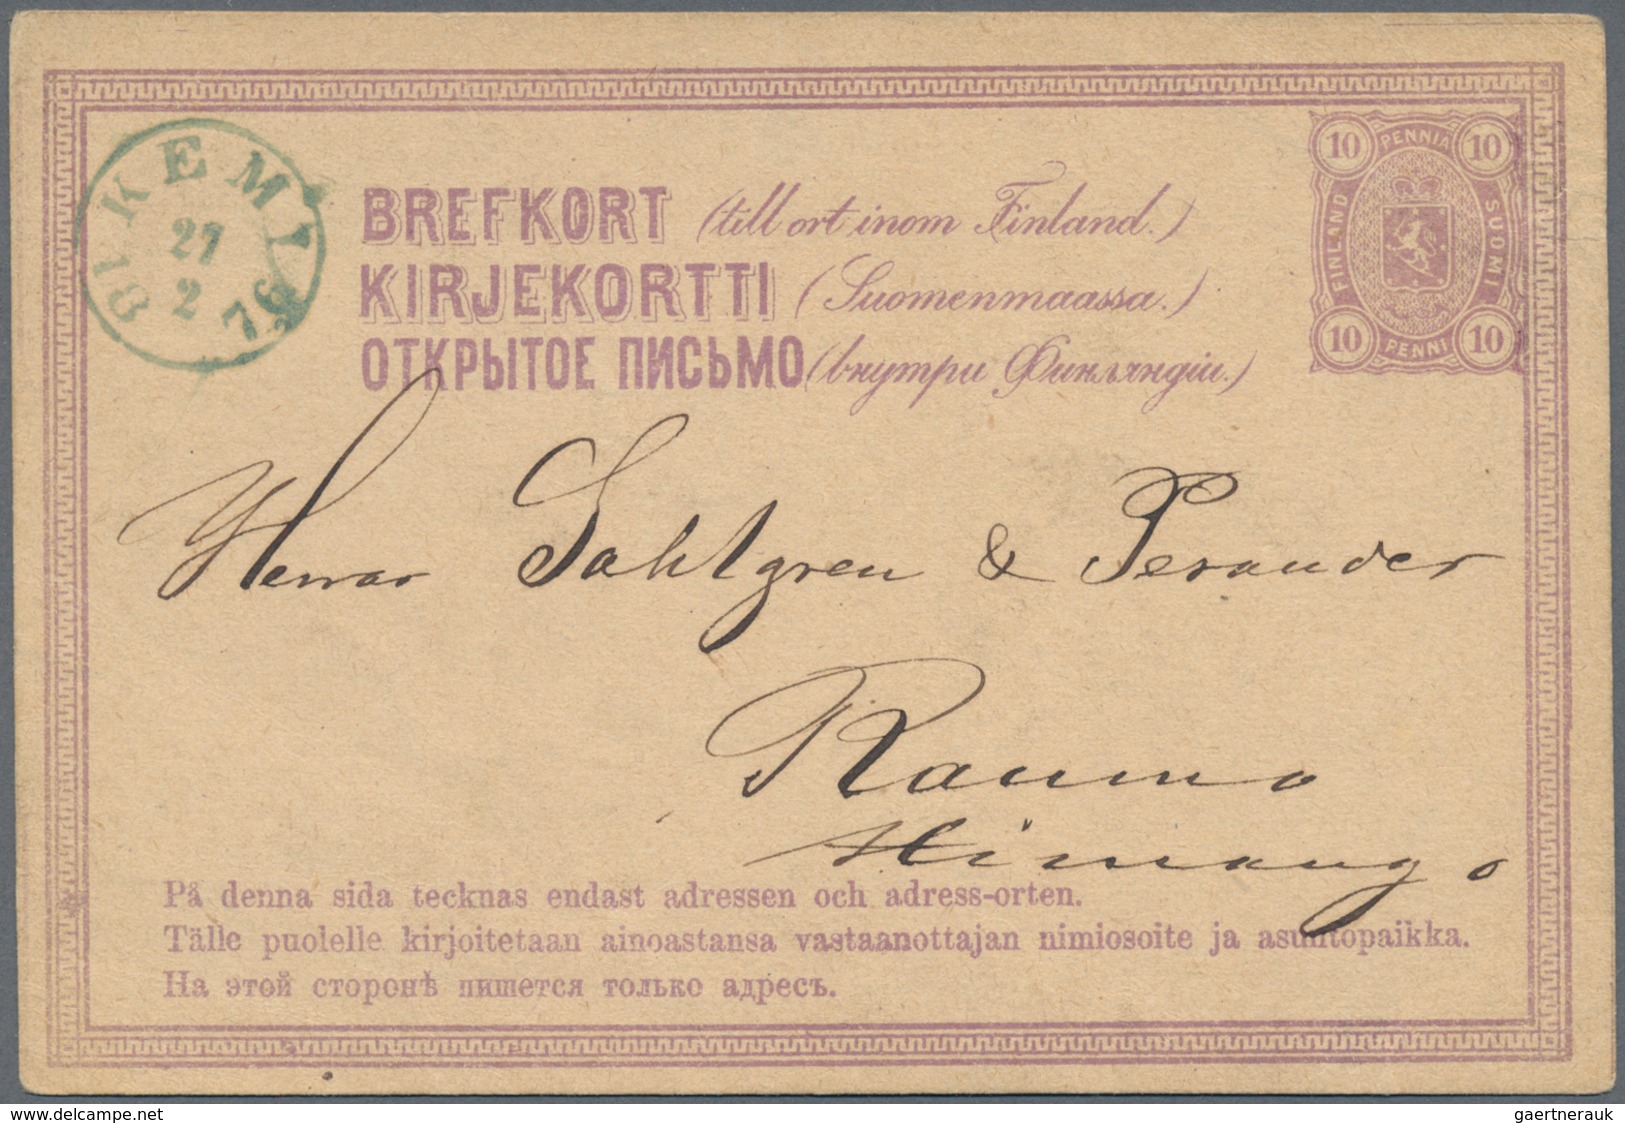 KEMI
27
2
18 76
10 PENNIÄ 10
FINLAND SUOMI
10 PENNI 10
BREFKORT (till ort inom Finland.)
KIRJEKORTTI (Suomenmaassa.)
ОТКРЫТОЕ ПИСЬМО (внутри Финляндіи.)
Herrar Sahlgren & Perander
Raumo
Himango
På denna sida tecknas endast adressen och adress-orten.
Tälle puolelle kirjoitetaan ainoastansa vastaanottajan nimiosoite ja asuntopaikka.
На этой сторонѣ пишется только адресъ.
www.delcampe.net
gaertnerauk